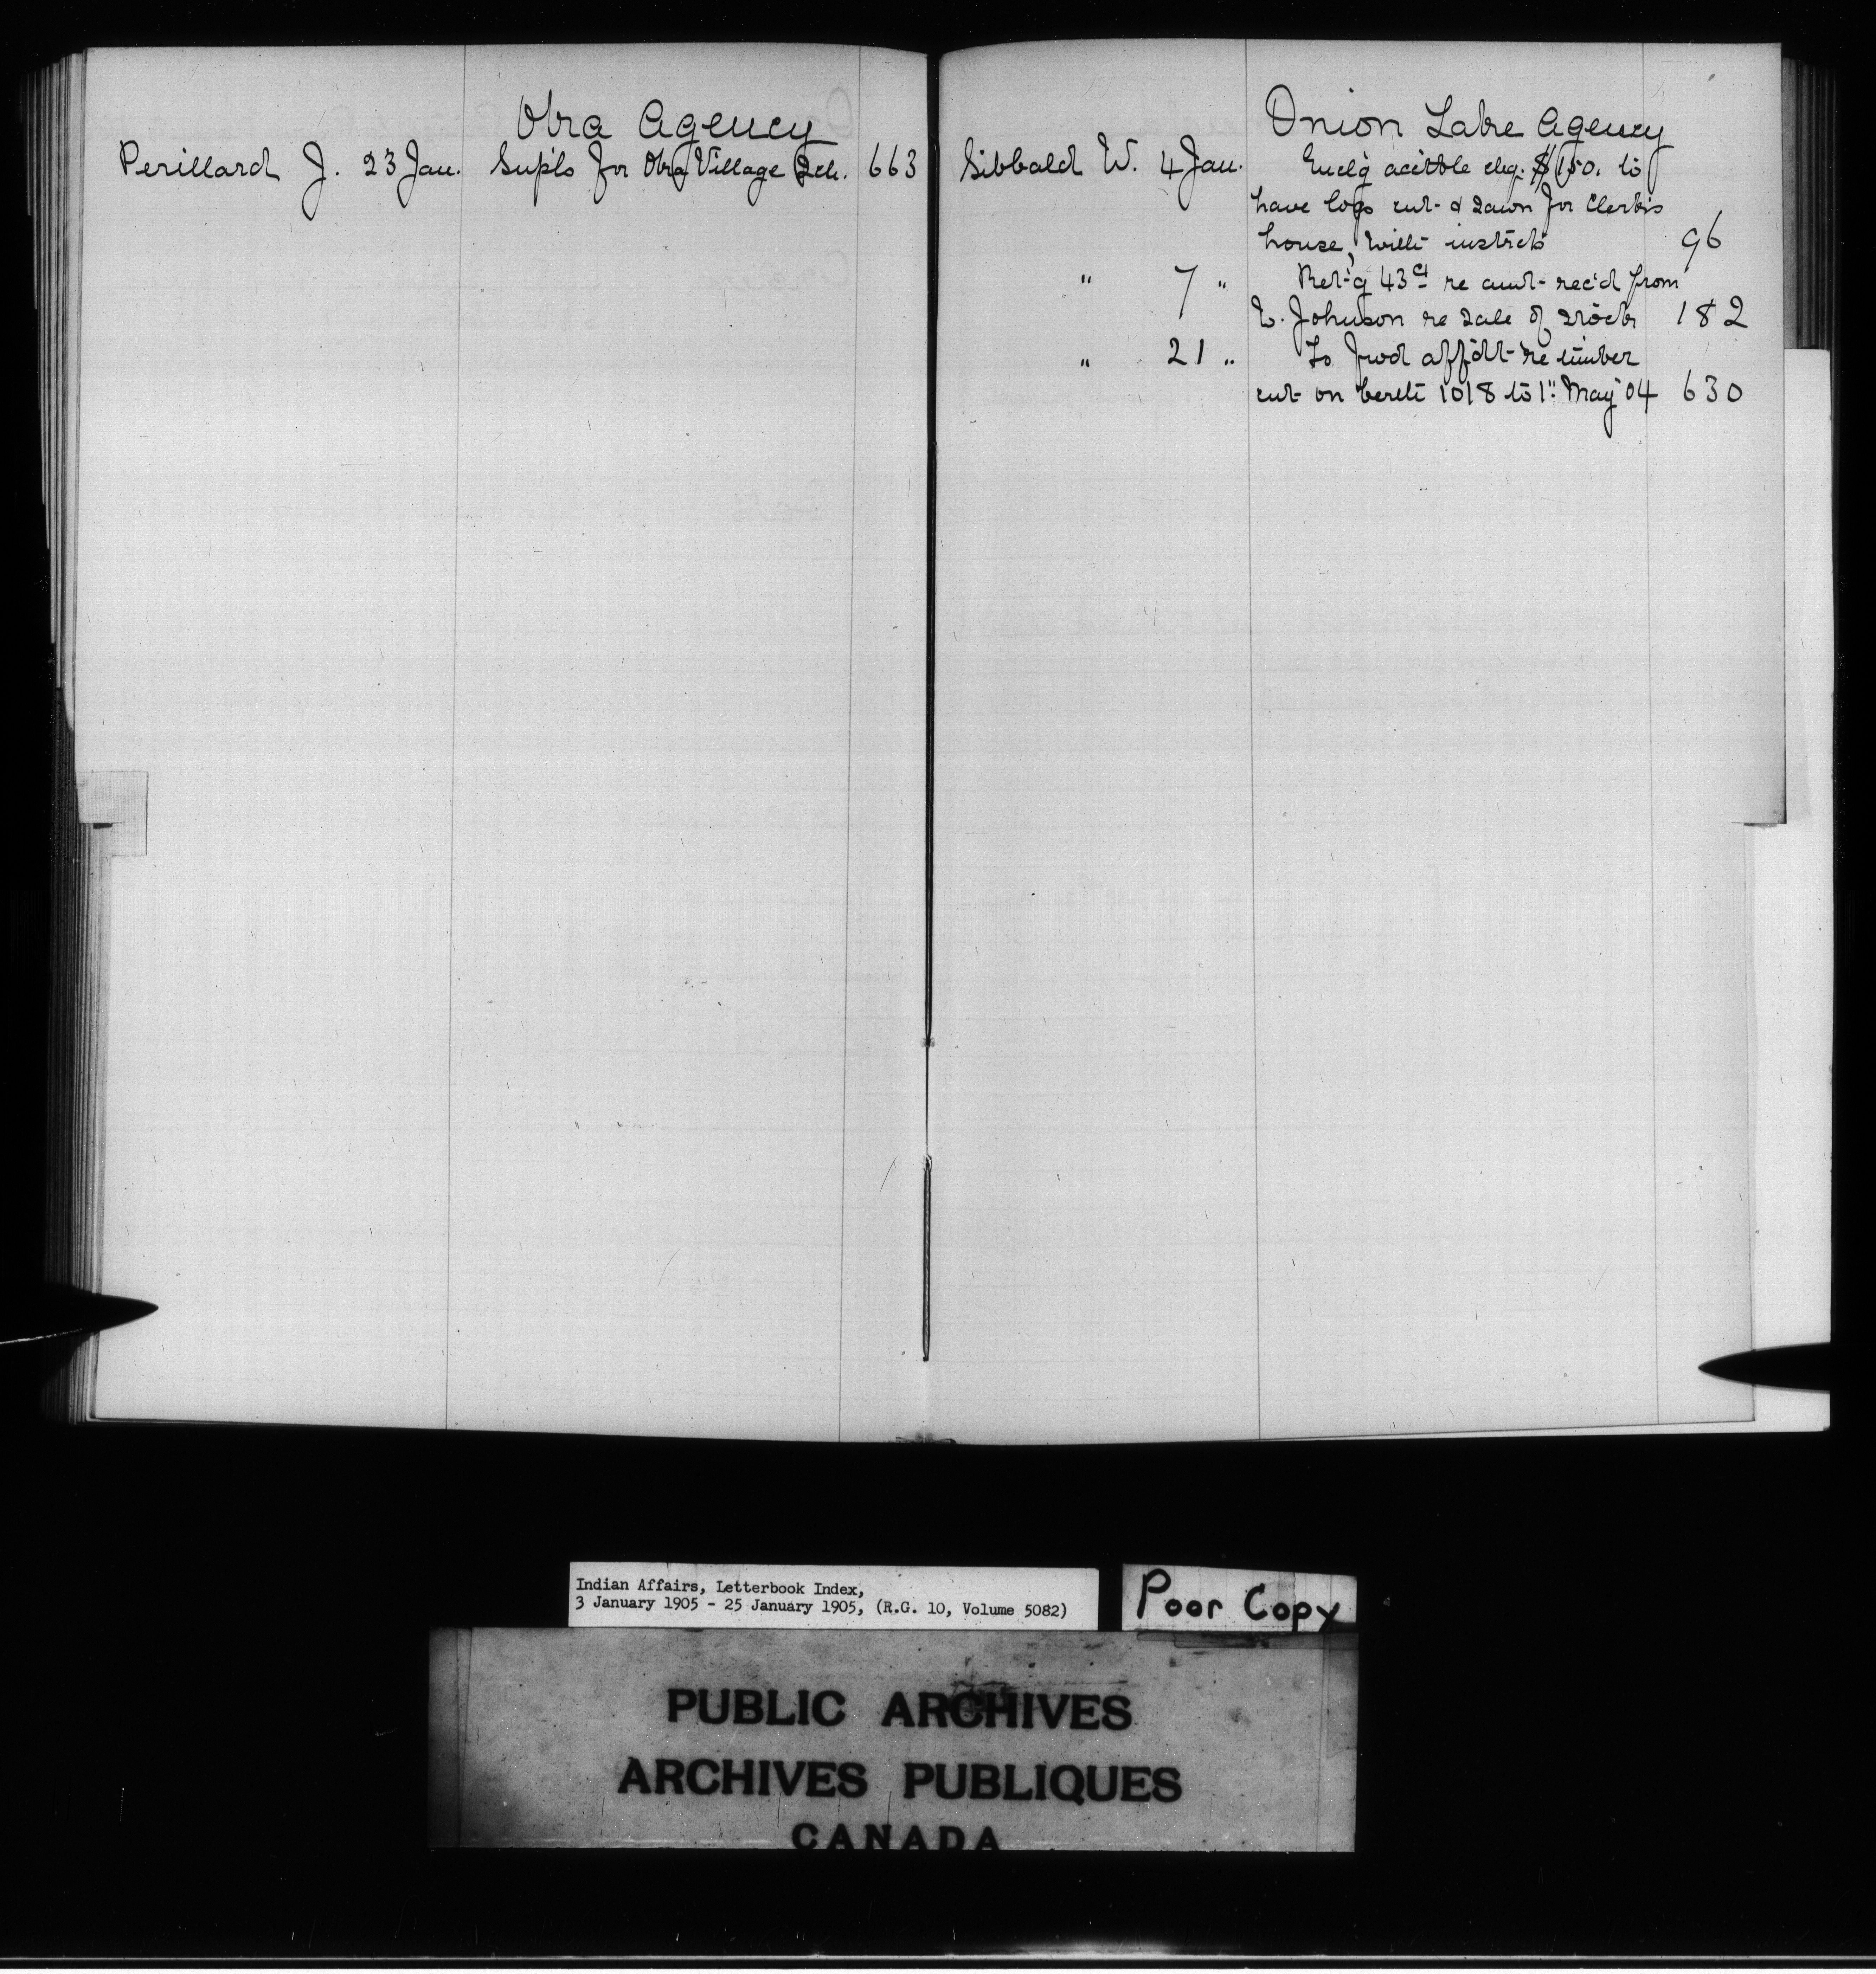 Oka Agency
Perillard J. 23 Jan. Supls for Oka Village Sch. 663
Onion Lake Agency
Sibbald W. 4 Jan. Encl'g acctble chq. $150. to
have logs cut & sawn for Clerk's
house, with instrcts 96
" 7 " Ret'g 43 cs re amt rec'd from
E. Johnson re sale of stock 182
" 21 " To fwd affdt re timber
cut on berth 1018 to 1" May 04 630
Indian Affairs, Letterbook Index,
3 January 1905 - 25 January 1905, (R.G. 10, Volume 5082)
Poor Copy
PUBLIC ARCHIVES
ARCHIVES PUBLIQUES
CANADA